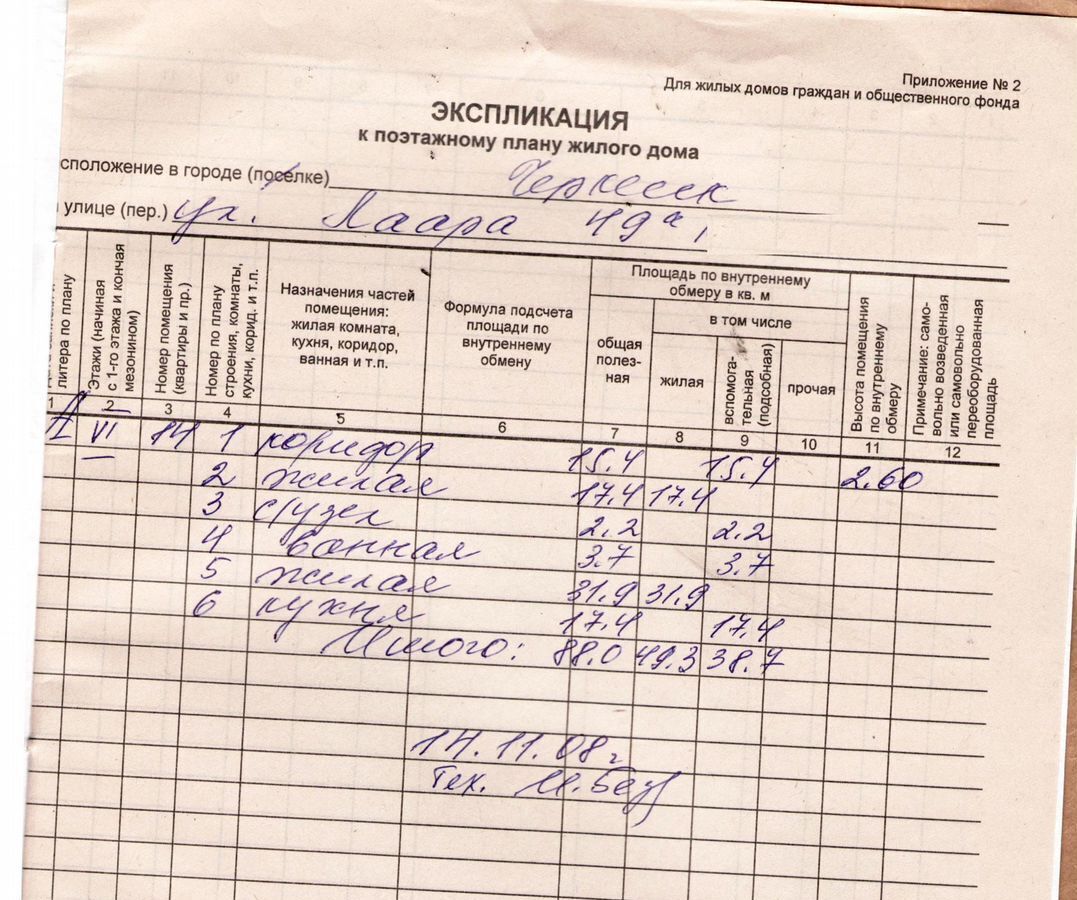 Приложение № 2
Для жилых домов граждан и общественного фонда
ЭКСПЛИКАЦИЯ
к поэтажному плану жилого дома
сположение в городе (поселке) Черкесск
улице (пер.) ул. 49а,
литера по плану
Этажи (начиная с 1-го этажа и кончая мезонином)
Номер помещения (квартиры и пр.)
Номер по плану строения, комнаты, кухни, корид. и т.п.
Назначения частей помещения: жилая комната, кухня, коридор, ванная и т.п.
Формула подсчета площади по внутреннему обмену
Площадь по внутреннему обмеру в кв. м
в том числе
общая полез-ная
жилая
вспомога-тельная (подсобная)
прочая
Высота помещения по внутреннему обмеру
Примечание: само-вольно возведенная или самовольно переоборудованная площадь
1 2 3 4 5 6 7 8 9 10 11 12
VI 84 1 коридор 15.4 15.4 2.60
2 жилая 17.4 17.4
3 с/узел 2.2 2.2
4 ванная 3.7 3.7
5 жилая 31.9 31.9
6 кухня 17.4 17.4
Итого: 88.0 49.3 38.7
14.11.08г
Тех.